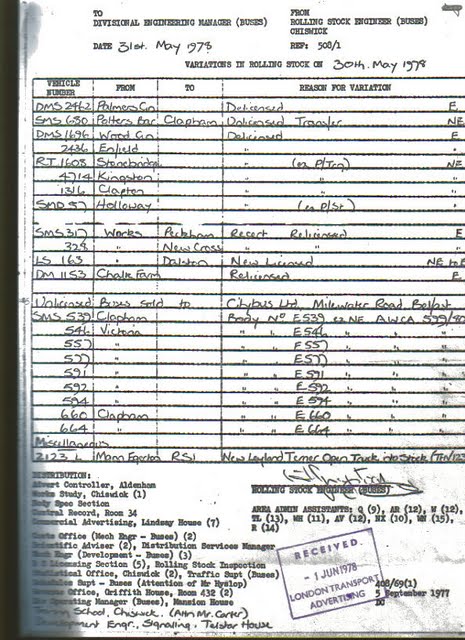 TO FROM
DIVISIONAL ENGINEERING MANAGER (BUSES) ROLLING STOCK ENGINEER (BUSES)
CHISWICK
DATE 31st. May 1978 REF: 500/1
VARIATIONS IN ROLLING STOCK ON 30th. May 1978
VEHICLE NUMBER FROM TO REASON FOR VARIATION
DMS 2462 Palmers Gn Delicensed E
SMS 680 Potters Bar Clapham Unlicensed Transfer NE
DMS 1696 Wood Gn Delicensed E
2436 Enfield " "
RT 1608 Stonebridge " (ex P/Trn) NE
4714 Kingston " "
1316 Clapton " "
SMD 57 Holloway " (ex P/St) "
SMS 317 Works Peckham Recert Relicensed E
328 " New Cross " " "
LS 163 " Dalston New Licensed NE to E
DM 1153 Chalk Farm Relicensed E
Unlicensed Buses sold to Citybus Ltd, Milewater Road, Belfast
SMS 539 Clapham Body No E539 ex NE AWCA 599/80
546 Victoria " " E546 " "
557 " " " E557 " "
577 " " " E577 " "
591 " " " E591 " "
592 " " " E592 " "
594 " " " E594 " "
660 Clapham " " E660 " "
664 " " " E664 " "
Miscellaneous
2123 L Mann Egerton RS1 New Leyland Terrier Open Truck into Stock
ROLLING STOCK ENGINEER (BUSES)
DISTRIBUTION:
Advert Controller, Aldenham
Works Study, Chiswick (1)
Body Spec Section
Central Record, Room 34
Commercial Advertising, Lindsay House (7)
AREA ADMIN ASSISTANTS: Q (9), AR (12), W (12),
TL (13), WH (11), AV (12), NX (10), WN (15),
R (14)
Costs Office (Mech Engr - Buses) (2)
Scientific Adviser (2), Distribution Services Manager
Mech Engr (Development - Buses) (3)
Licensing Section (5), Rolling Stock Inspection
Statistical Office, Chiswick (2), Traffic Supt (Buses)
Supt - Buses (Attention of Mr Hyslop)
Office, Griffith House, Room 432 (2)
Operating Manager (Buses), Mansion House
Training School, Chiswick. (Attn Mr. Carter)
Development Engr., Signalling, Telstar House
RECEIVED
- 1 JUN 1978
LONDON TRANSPORT
ADVERTISING
408/69(1)
5 September 1977
DG